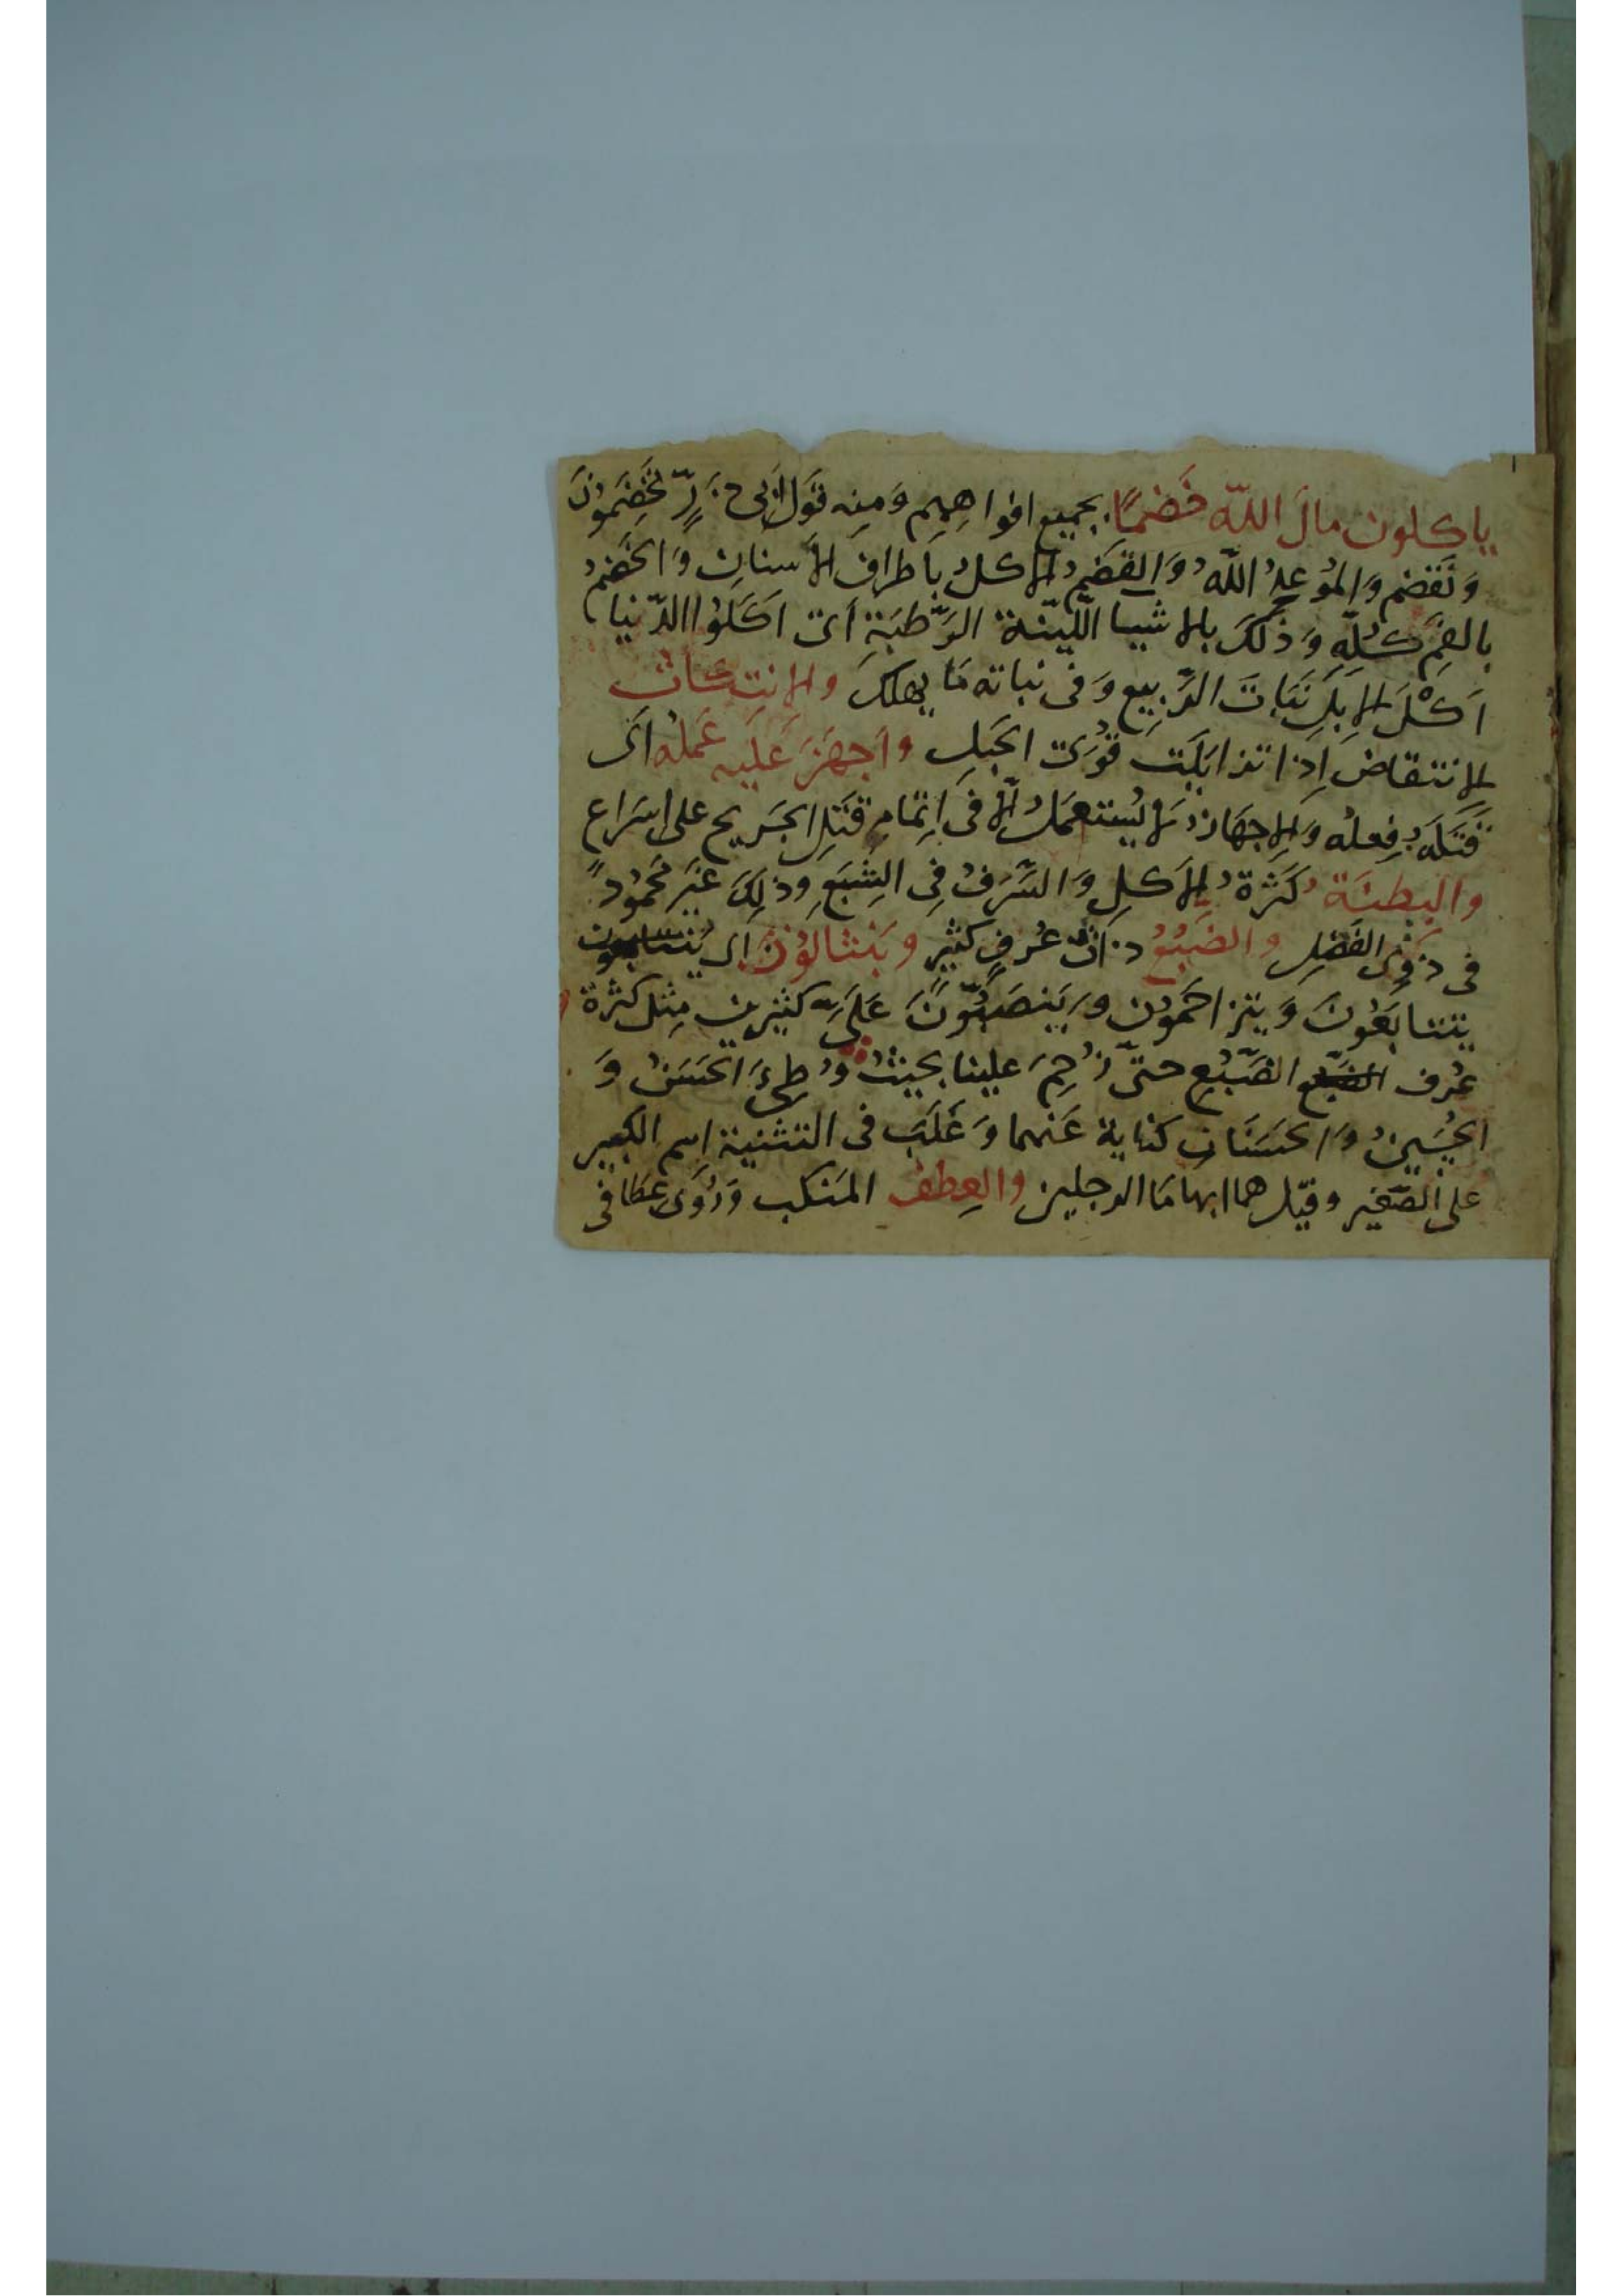 ياكلون مالَ اللّه خَضمًا. بجميع افواهِهِم وَمِنه قَول اَبى ذَرٍّ تَخضِمُونَ
وَنَقضم وَالمُوعِدُ اللّهُ وَالقَضمُ الاكلُ باَطرافِ الأسنانِ وَالخَضمُ
بالفَمِ كُلّهِ وَذلكَ بالاشيا اللّيّنة الرَّطبَةِ اَى اَكَلُوا الدّنيا
اَكلَ الابِلِ نَبَاتَ الرَّبِيعِ وَفى نباته مَا يهلك والانتِكاث
الانتقاض اِذا تزايَلَت قُوَى الحَبلِ واَجهَزَ عَلَيهِ عَمَلُه اَى
قَتَلَهُ فِعلُه وَالاِجهَازُ لا يُستعمَلُ الّا فى اِتمام قَتلِ الجَريح على اسرَاع
والبِطنَةُ كَثرةُ الاَكلِ وَالسَّرَفُ فِى الشِبَعِ وذلِكَ غَيرُ مَحمُودٍ
فى ذَوِى الفَضلِ والضَبُعُ ذاتُ عُرفٍ كثيرٍ ويَنثالُونَ اى
يتتابَعُونَ وَيتزاحَمُون ويَنصَبُّونَ عَلَىَّ كثيرين مِثل كثرة
عُرف الضَّبُع حتّى زُحِمَ علينا بحيثُ وُطِئَ الحَسَنُ وَ
الحُسَينُ وَالحَسَنَانِ كناية عَنهما وَغَلَبَ فى التثنية اسم الكبير
على الصَّغير وقيل هما ابهامَا الرجلين والعِطف المَنكب وَرُوِىَ عَطَافى